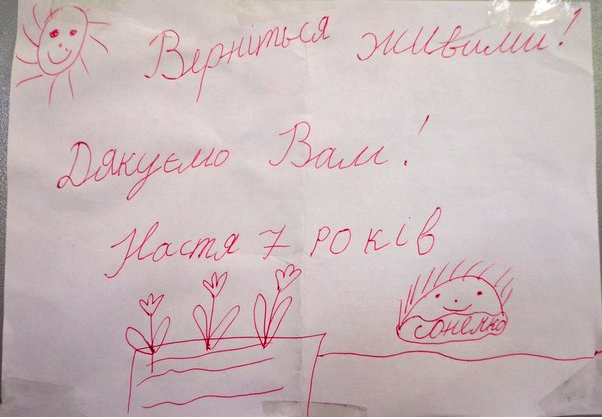 Верніться живими!
Дякуємо Вам!
Настя 7 років
сонечко